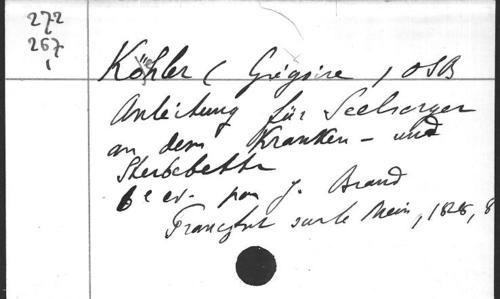 272
267
1
Köhler (Grégoire) OSB
Anleitung für Seelsorger
an dem Kranken- und
Sterbebette
6e ed. par J. Brand
Francfort sur le Mein, 1828, 8